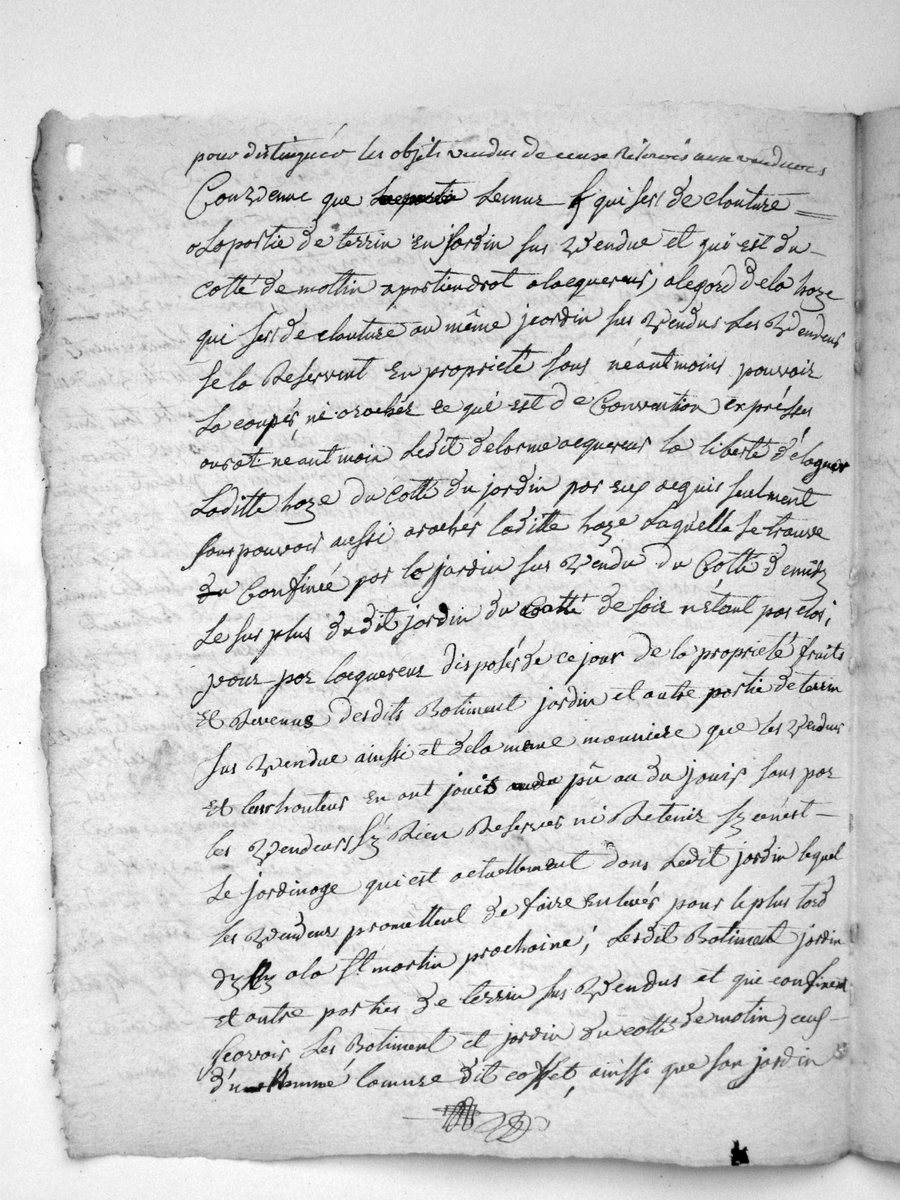 pour distinguér les objets vendus de ceux Réservés aux vendeurs
Convenue que Lemur qui sert de clouture
a La portie de terrin En Jordin sus Vendue et qui est du
cotté de mottin apartiendrat a lacquereur, a legord de la haze
qui sert de clouture au même jeardin sus Vendus Les Vendeurs
se la Reservent En propriété sans néantmoins pouvoir
La coupés ni arachér ce qui est de Convention expréssee
aurat neantmoin Ledit delorme acquereur la liberté d'élaguér
Laditte haze du Cotté du jordin par eux acquis seulment
sans pouvoir aussi arachér laditte haze Laquélla se trouve
Confinée par le jardin sus vendu du Cotté
Le sur plus dudit jordin du Cotté de soir nétant pas clos;
pour por lacquereur disposér de ce jour de la propriété fruits
Et Revenus desdits Batiment jordin et autre portie de terrin
sus Vendue ainssi et de la meme manniere que les Vendeurs
Et leurs hauteurs En ont jouit pû ou du jouir sans par
les Vendeurs sÿ Rien Reserver ni Retenir sy cenest
Le jordinage qui est actuellement dans Ledit jordin lequel
les Vendeurs promettent de faire Enlevés pour le plus tard
a la St martin prochaine; Lesdit Batiment jordin
et autre porties de terrin sus Vendus et que confinent
scavoir Les Batiment et jordin du cotté de matin, ceux
d'un nommé lamure dit coffet, ainssi que son jordin